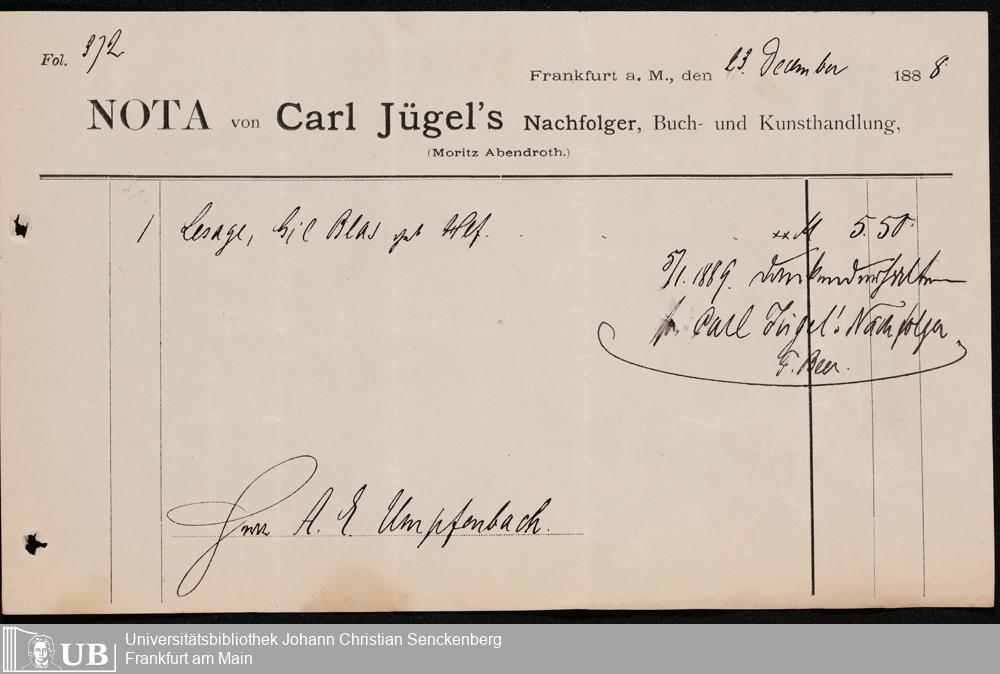 Fol. 372
Frankfurt a. M., den 23. December 1888.
NOTA von Carl Jügel's Nachfolger, Buch- und Kunsthandlung,
(Moritz Abendroth.)
1 Lesage, Gil Blas M 5.50.
5/1. 1889. dankend erhalten
Carl Jügel's Nachfolger
F. Beer.
Herrn A. E. Umpfenbach.
UB Universitätsbibliothek Johann Christian Senckenberg
Frankfurt am Main